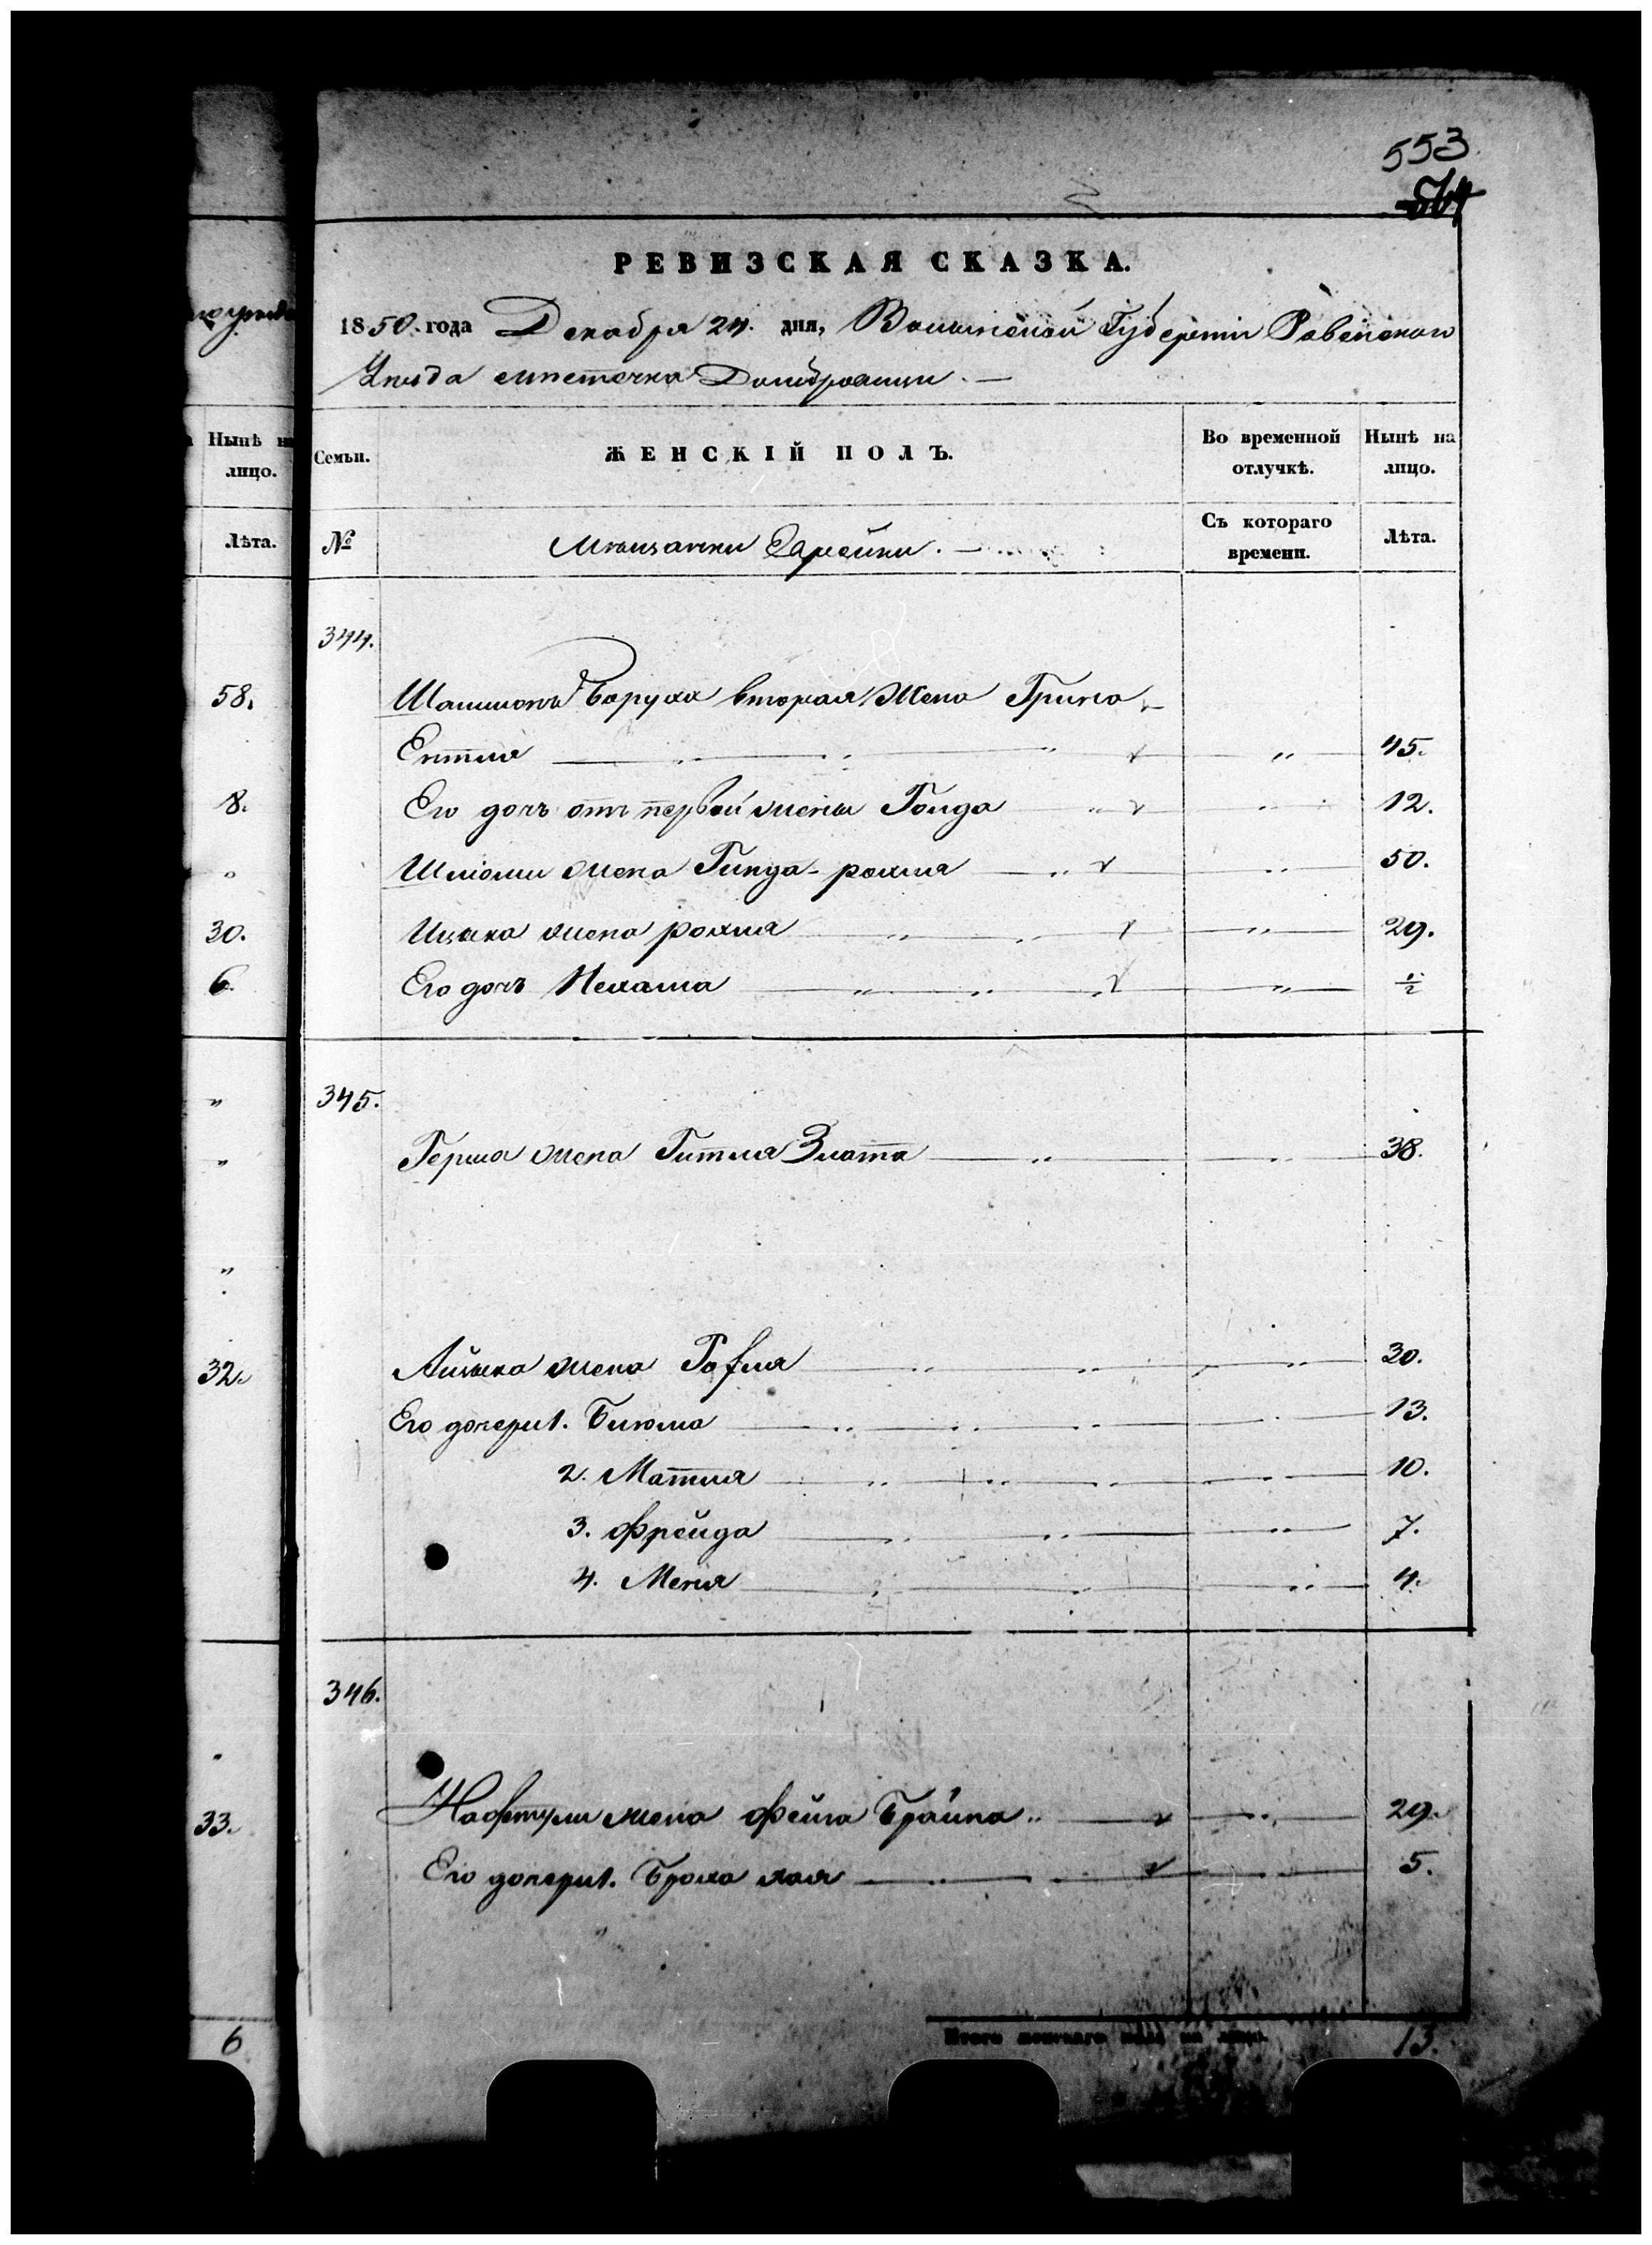 553
РЕВИЗСКАЯ СКАЗКА.
1850. года Декабря 24. дня, Волынской Губерніи Ровенского
Уѣзда мѣстечка Домбровицы. —
Нынѣ на лицо.
Лѣта.
Семьи. ЖЕНСКІЙ ПОЛЪ. Во временной отлучкѣ. Нынѣ на лицо.
№ Мѣщанки Еврейки. — Съ котораго времени. Лѣта.
344.
58. Боруха вторая Жена
Ентля — „ — 45.
8. Его дочь отъ первой жены Голда „ 12.
Шліоми жена Гинда-рохля — „ 50.
30. Ицька жена рохля „ 29.
6. Его дочь Нехама „ ½
345.
Герша жена Гитля Злота — „ 38.
32. Айзыка жена 30.
Его дочери 1. Блюма 13.
2. Матля 10.
3. Фрейда 7.
4. Меня 4.
346.
33. Нафтули жена Фейга Брайна „ 29.
Его дочери 1. Броха хая 5.
6 Итого женскаго пола на лицо. 13.